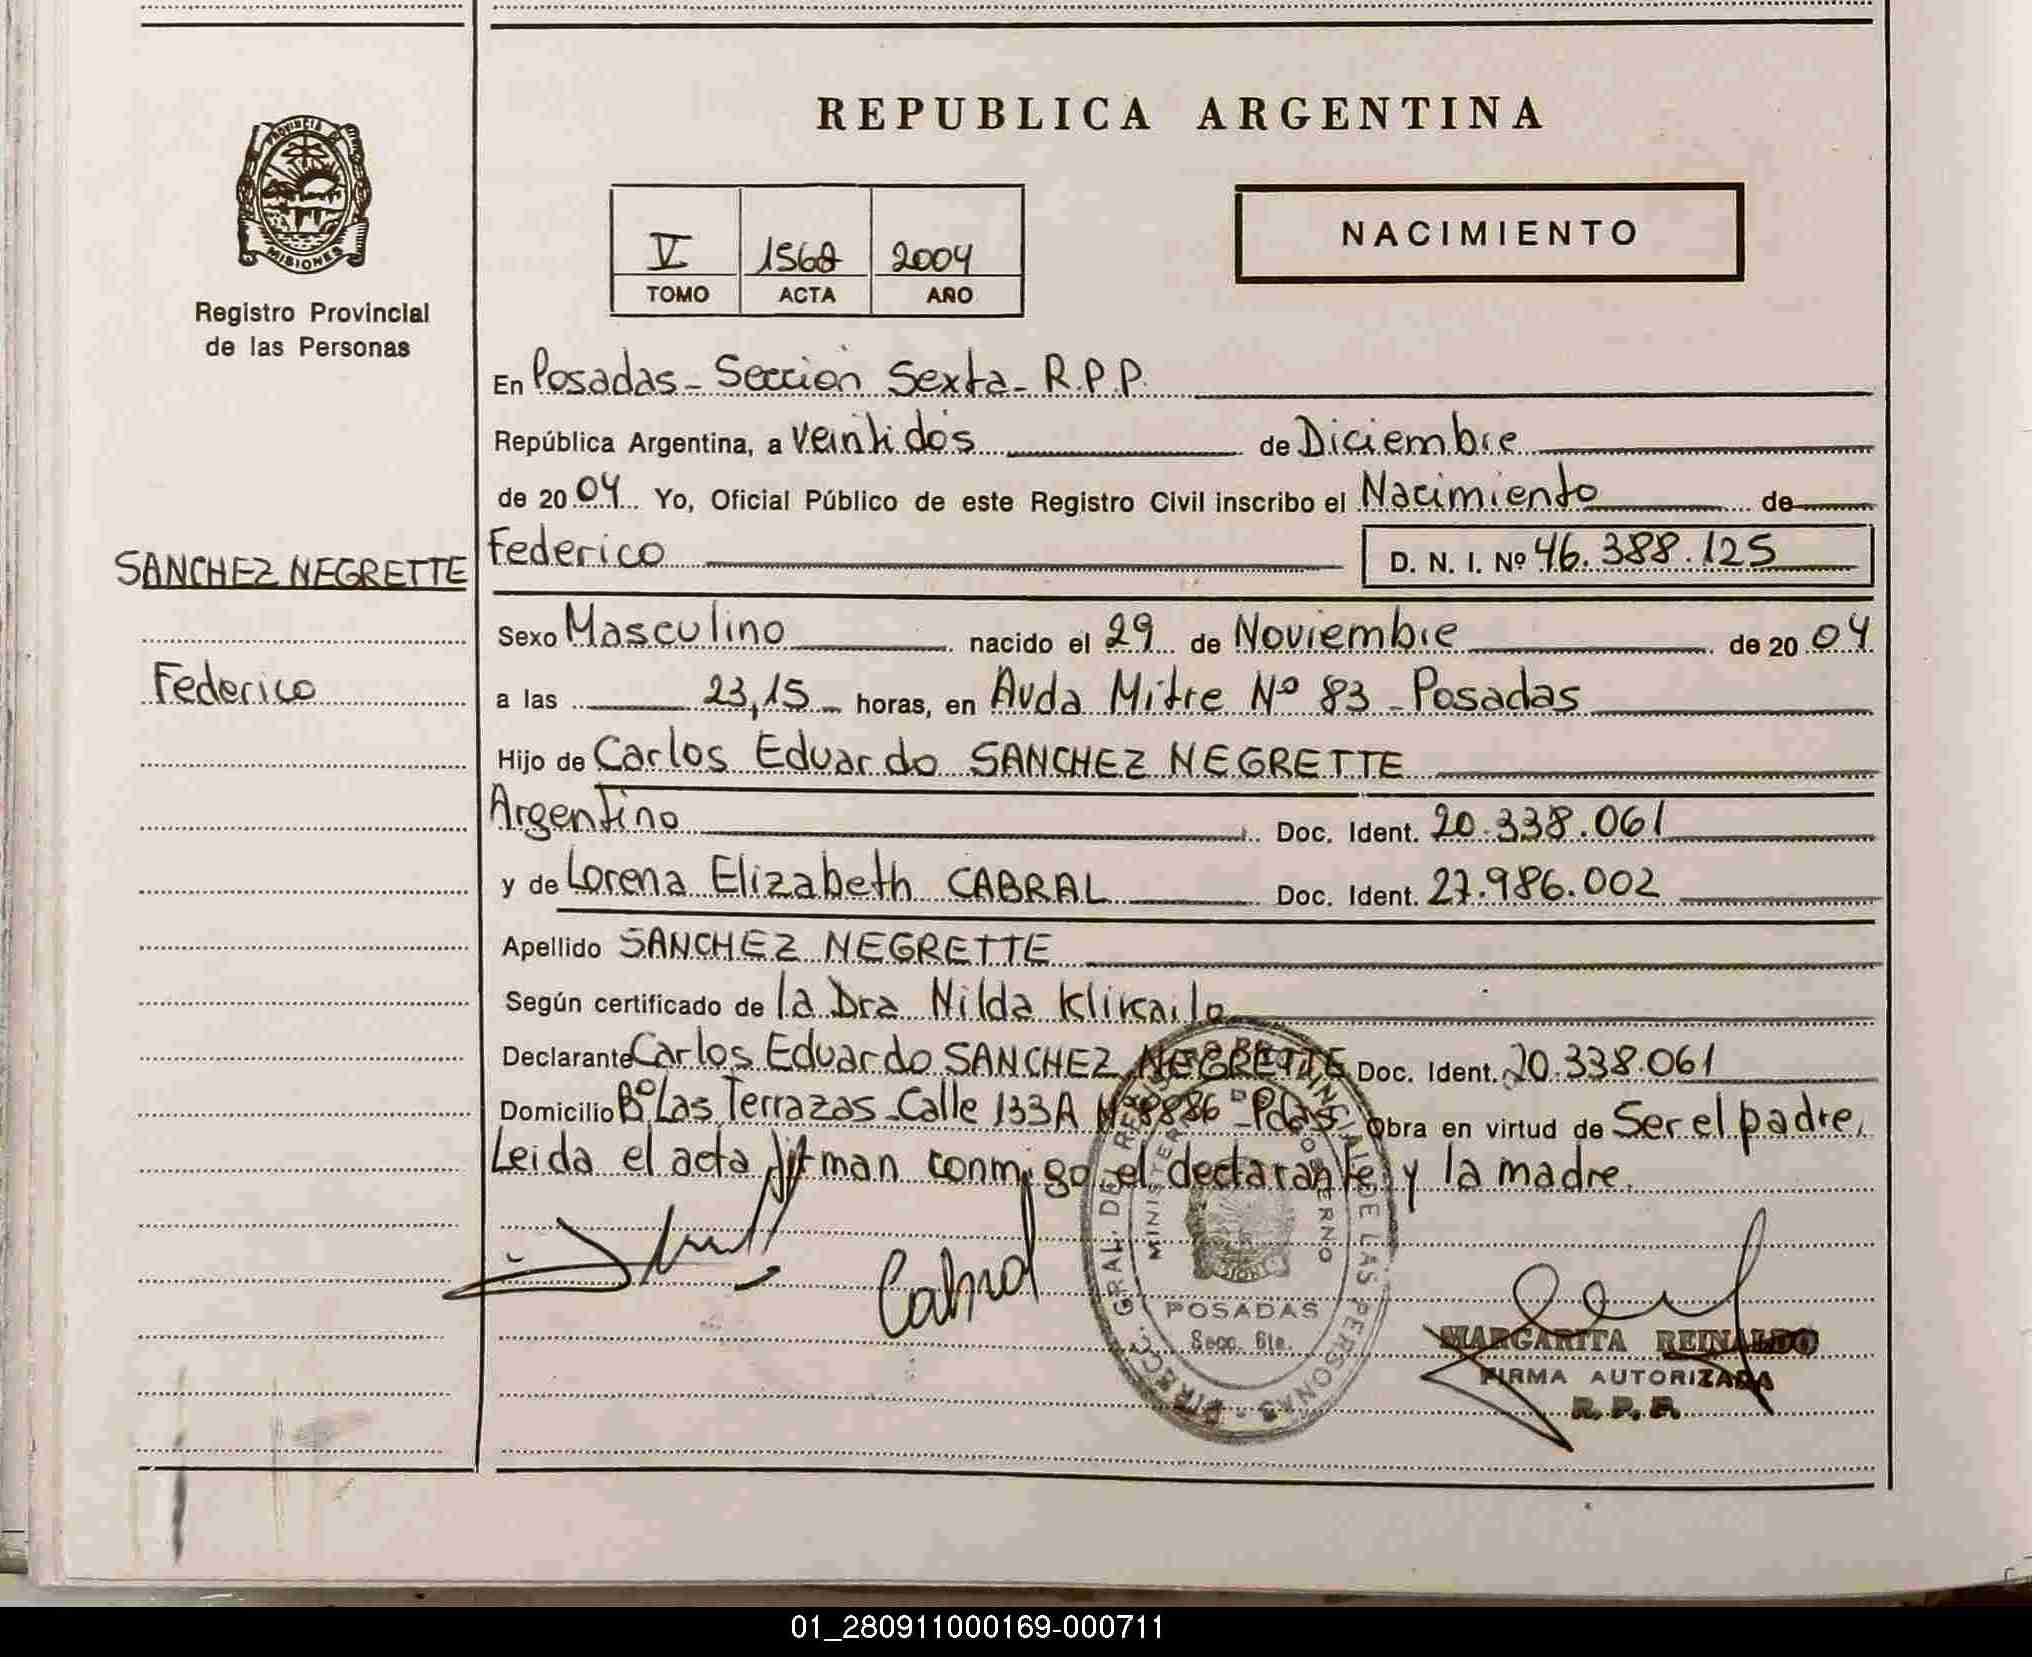 REPUBLICA ARGENTINA
PROVINCIA DE
MISIONES
Registro Provincial
de las Personas
V 1568 2004
TOMO ACTA AÑO
NACIMIENTO
En Posadas - Sección Sexta - R.P.P.
República Argentina, a veintidós de Diciembre
de 2004 Yo, Oficial Público de este Registro Civil inscribo el Nacimiento de
SANCHEZ NEGRETTE
Federico
Federico D. N. I. Nº 46.388.125
Sexo Masculino nacido el 29 de Noviembre de 2004
a las 23,15 horas, en Avda Mitre Nº 83 - Posadas
Hijo de Carlos Eduardo SANCHEZ NEGRETTE
Argentino Doc. Ident. 20.338.061
y de Lorena Elizabeth CABRAL Doc. Ident. 27.986.002
Apellido SANCHEZ NEGRETTE
Según certificado de la Dra Nilda
Declarante Carlos Eduardo SANCHEZ NEGRETTE Doc. Ident. 20.338.061
Domicilio Bº Las Terrazas - Calle 133A Nº 8886 - Pdas. Obra en virtud de Ser el padre,
Leida el acta firman conmigo el declarante y la madre.
Cabral
DIRECC. GRAL. DE REGISTRO PROVINCIAL DE LAS PERSONAS
MINISTERIO DE GOBIERNO
MISIONES
POSADAS
Secc. 6ta.
MARGARITA REINALDO
FIRMA AUTORIZADA
R. P. P.
01_280911000169-000711